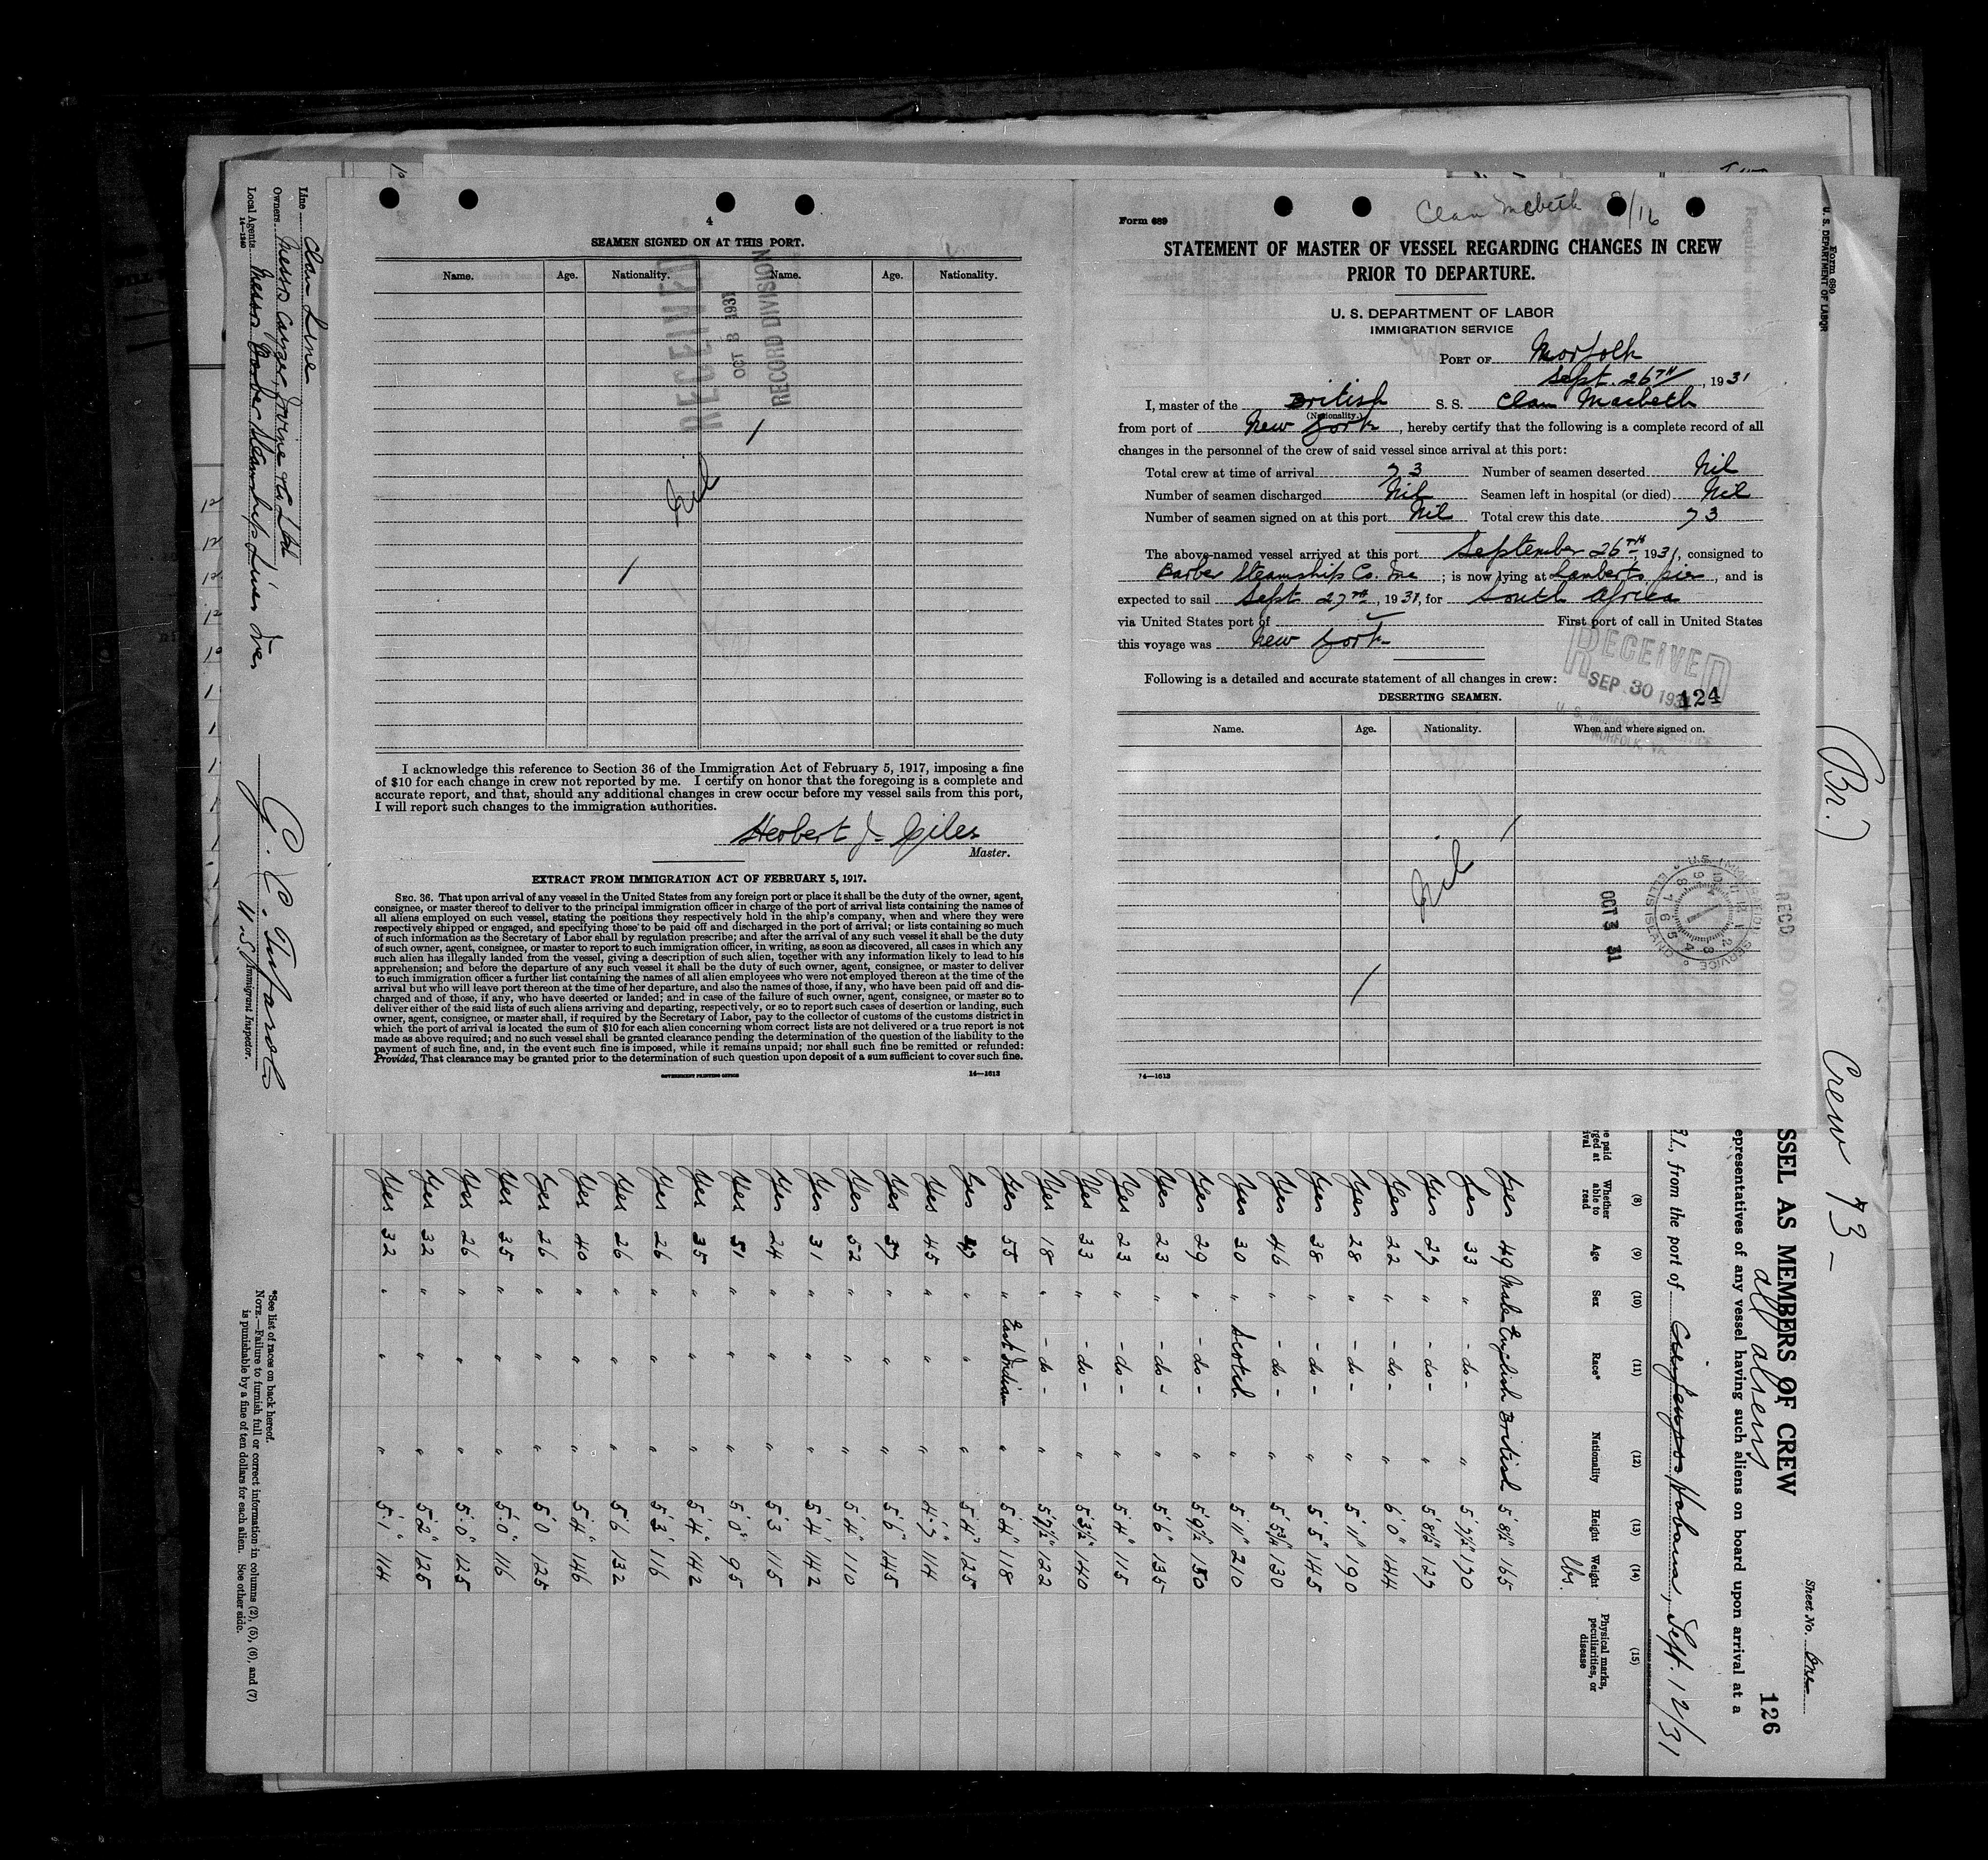 4
SEAMEN SIGNED ON AT THIS PORT.
Name. Age. Nationality. Name. Age. Nationality.
RECEIVED
OCT 8 1931
RECORD DIVISION
Nil
I acknowledge this reference to Section 36 of the Immigration Act of February 5, 1917, imposing a fine
of $10 for each change in crew not reported by me. I certify on honor that the foregoing is a complete and
accurate report, and that, should any additional changes in crew occur before my vessel sails from this port,
I will report such changes to the immigration authorities.
Herbert J. Giles
Master.
EXTRACT FROM IMMIGRATION ACT OF FEBRUARY 5, 1917.
SEC. 36. That upon arrival of any vessel in the United States from any foreign port or place it shall be the duty of the owner, agent,
consignee, or master thereof to deliver to the principal immigration officer in charge of the port of arrival lists containing the names of
all aliens employed on such vessel, stating the positions they respectively hold in the ship's company, when and where they were
respectively shipped or engaged, and specifying those to be paid off and discharged in the port of arrival; or lists containing so much
of such information as the Secretary of Labor shall by regulation prescribe; and after the arrival of any such vessel it shall be the duty
of such owner, agent, consignee, or master to report to such immigration officer, in writing, as soon as discovered, all cases in which any
such alien has illegally landed from the vessel, giving a description of such alien, together with any information likely to lead to his
apprehension; and before the departure of any such vessel it shall be the duty of such owner, agent, consignee, or master to deliver
to such immigration officer a further list containing the names of all alien employees who were not employed thereon at the time of the
arrival but who will leave port thereon at the time of her departure, and also the names of those, if any, who have been paid off and dis-
charged and of those, if any, who have deserted or landed; and in case of the failure of such owner, agent, consignee, or master so to
deliver either of the said lists of such aliens arriving and departing, respectively, or so to report such cases of desertion or landing, such
owner, agent, consignee, or master shall, if required by the Secretary of Labor, pay to the collector of customs of the customs district in
which the port of arrival is located the sum of $10 for each alien concerning whom correct lists are not delivered or a true report is not
made as above required; and no such vessel shall be granted clearance pending the determination of the question of the liability to the
payment of such fine, and, in the event such fine is imposed, while it remains unpaid; nor shall such fine be remitted or refunded:
Provided, That clearance may be granted prior to the determination of such question upon deposit of a sum sufficient to cover such fine.
GOVERNMENT PRINTING OFFICE 14—1613
Form 689
Clan Mcbeth 9/16
STATEMENT OF MASTER OF VESSEL REGARDING CHANGES IN CREW
PRIOR TO DEPARTURE.
U. S. DEPARTMENT OF LABOR
IMMIGRATION SERVICE
PORT OF Norfolk
Sept. 26TH, 1931
I, master of the British S. S. Clan Macbeth
(Nationality.)
from port of New York, hereby certify that the following is a complete record of all
changes in the personnel of the crew of said vessel since arrival at this port:
Total crew at time of arrival 73 Number of seamen deserted Nil
Number of seamen discharged Nil Seamen left in hospital (or died) Nil
Number of seamen signed on at this port Nil Total crew this date 73
The above-named vessel arrived at this port September 26TH, 1931, consigned to
Barber Steamship Co. Inc; is now lying at Lamberts pier, and is
expected to sail Sept 27TH, 1931, for South Africa
via United States port of First port of call in United States
this voyage was New York
Following is a detailed and accurate statement of all changes in crew:
RECEIVED
SEP 30 1931
124
DESERTING SEAMEN.
Name. Age. Nationality. When and where signed on.
Nil
OCT 3 31
U. S. IMMIGRATION SERVICE
ELLIS ISLAND
14—1613
Form 680
U. S. DEPARTMENT OF LABOR
(Br.) Crew 73 -
Sheet No. One
126
SSEL AS MEMBERS OF CREW
all aliens
epresentatives of any vessel having such aliens on board upon arrival at a
, from the port of Habana, Sept. 12/31
(8) (9) (10) (11) (12) (13) (14) (15)
Whether able to read Age Sex Race* Nationality Height Weight Physical marks, peculiarities, or disease
lbs.
Yes 49 Male English British 5' 8½" 165
Yes 33 " - do - " 5' 7½" 170
Yes 27 " - do - " 5' 8½" 127
Yes 22 " - do - " 6' 0" 144
Yes 28 " - do - " 5' 11" 190
Yes 38 " - do - " 5' 5" 145
Yes 46 " - do - " 5' 5¾" 130
Yes 30 " Scotch " 5' 11" 210
Yes 29 " - do - " 5' 9½" 150
Yes 23 " - do - " 5' 6" 135
Yes 23 " - do - " 5' 4" 115
Yes 33 " - do - " 5' 3½" 140
Yes 18 " - do - " 5' 7½" 122
Yes 55 " East Indian " 5' 4" 118
Yes " " " 5' 4" 125
Yes 45 " " " 4' 7" 114
Yes 37 " " " 5' 6" 145
Yes 52 " " " 5' 4" 110
Yes 31 " " " 5' 4" 142
Yes 24 " " " 5' 3 115
Yes 51 " " " 5' 0" 95
Yes 35 " " " 5' 4" 142
Yes 26 " " " 5' 3" 116
Yes 26 " " " 5' 6 132
Yes 40 " " " 5' 4" 146
Yes 26 " " " 5' 0 125
Yes 35 " " " 5' 0" 116
Yes 26 " " " 5' 0" 125
Yes 32 " " " 5' 2" 125
Yes 32 " " " 5' 1" 114
Line Clan Line
Owners Messrs Cayzer, Irvine & Co Ltd
Local Agents Messrs Barber Steamship Lines Inc
14—1240
U.S. Immigrant Inspector.
*See list of races on back hereof.
NOTE.—Failure to furnish full or correct information in columns (2), (5), (6), and (7)
is punishable by a fine of ten dollars for each alien. See other side.